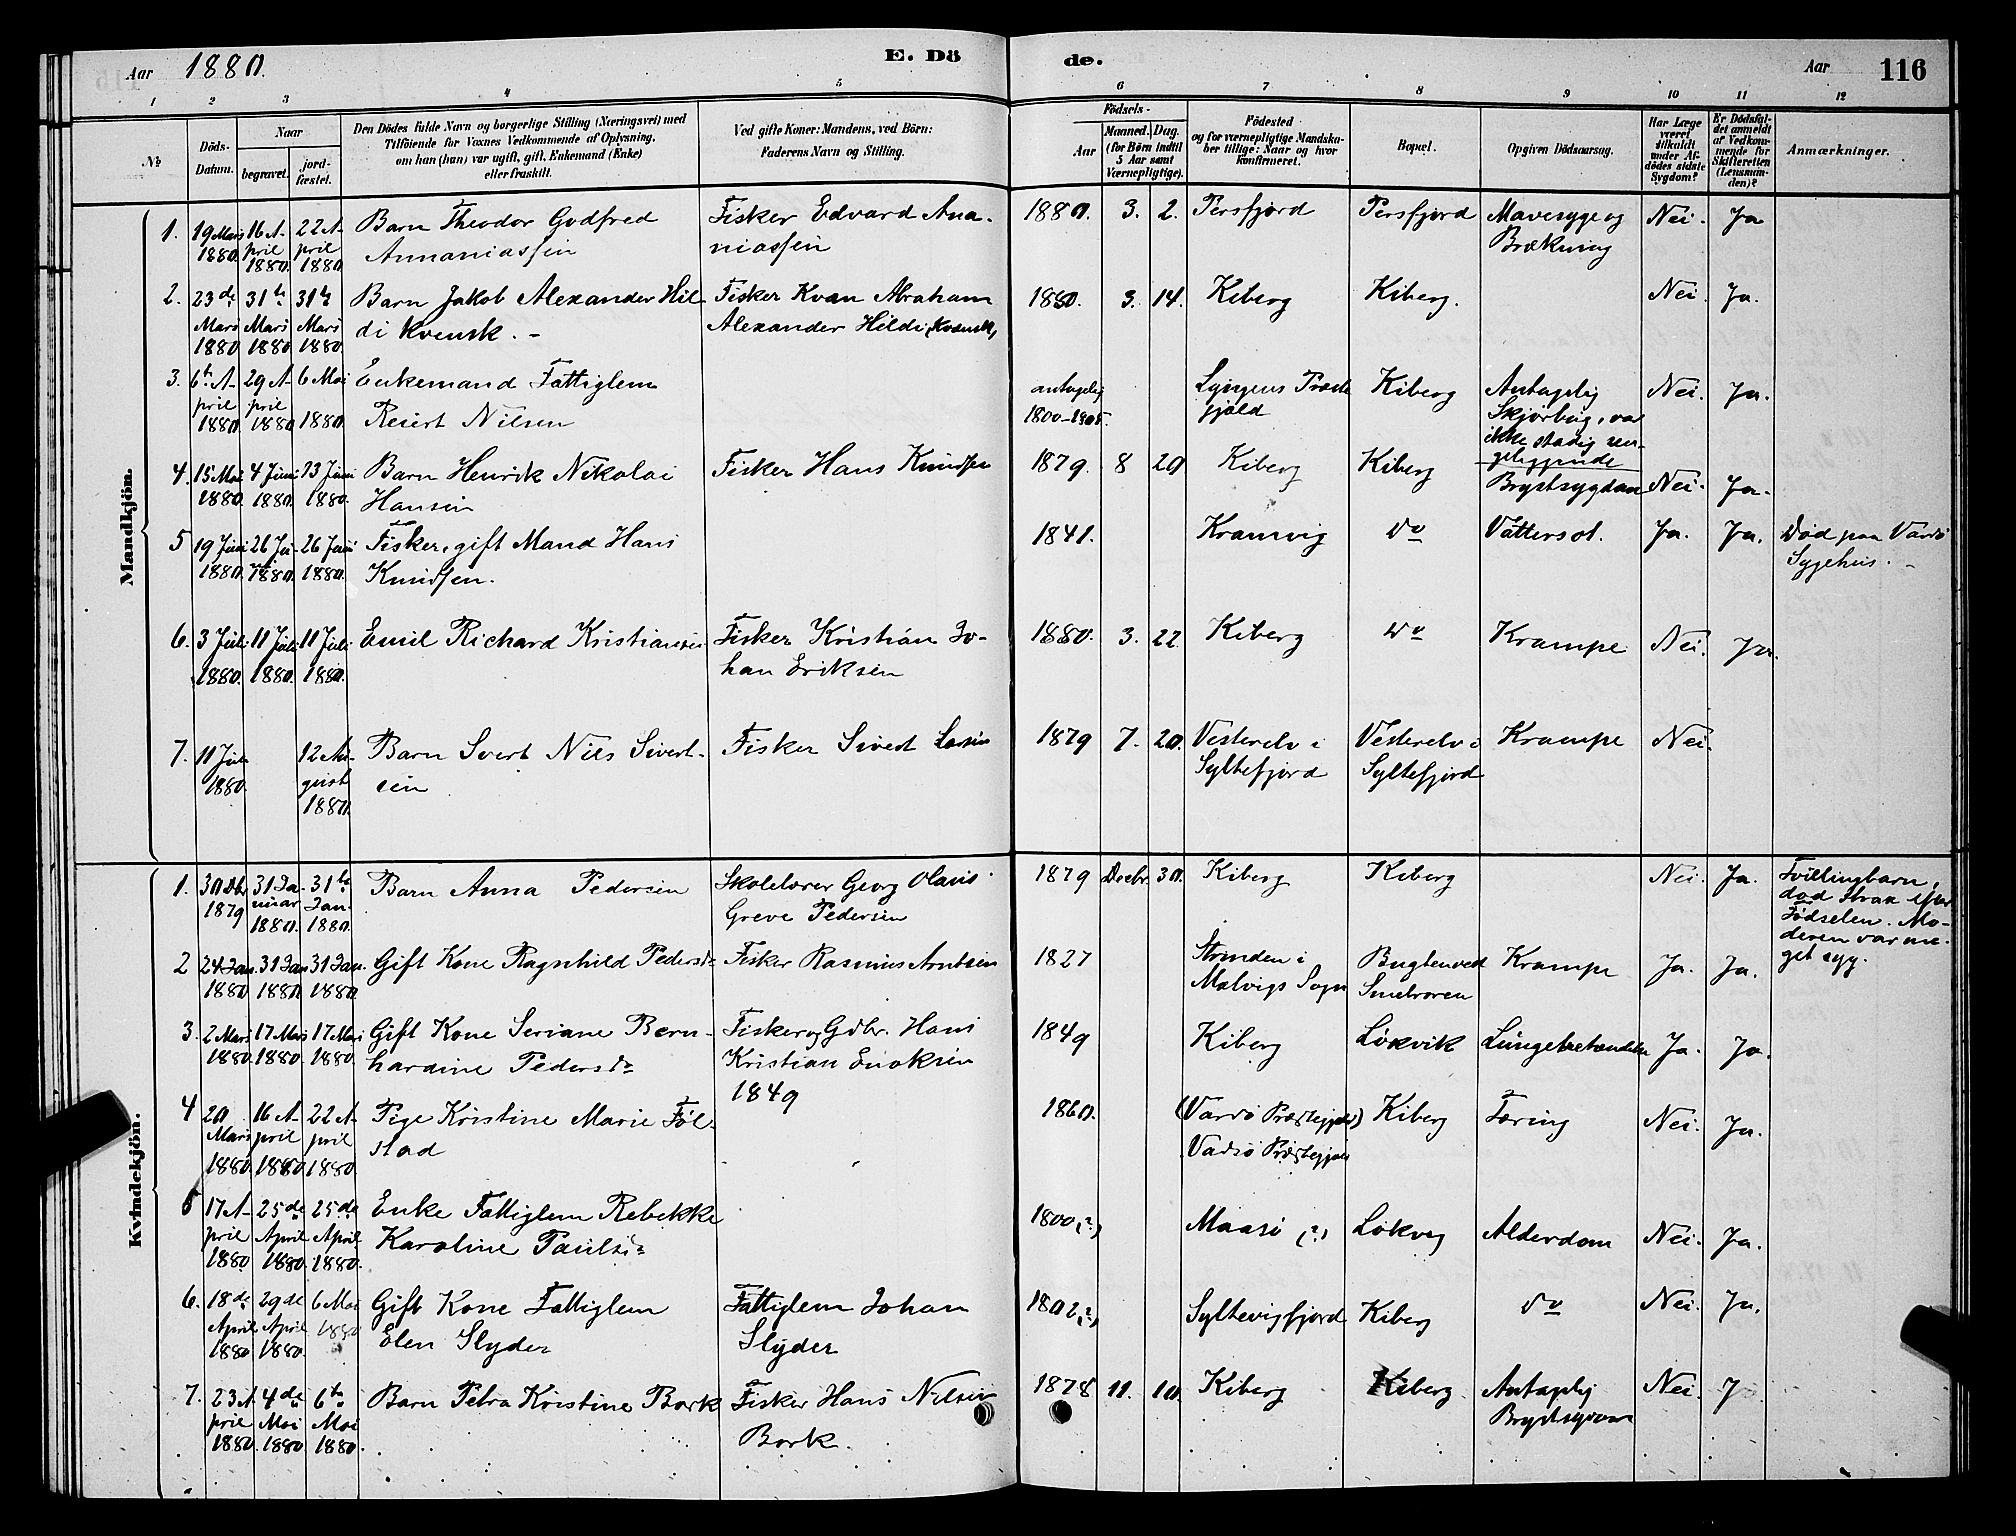 Aar 1880. E. Dö
de. Aar 116
1 2 3 4 5 6 7 8 9 10 11 12
No
Döds-
Datum.
Naar
begravet.
jord-
fæstet.
Den Dödes fulde Navn og borgerlige Stilling (Næringsvei) med
Tilföiende for Voxnes Vedkommende af Oplysning,
om han (hun) var ugift, gift, Enkemand (Enke)
eller fraskilt.
Ved gifte Koner: Mandens, ved Börn:
Faderens Navn og Stilling.
Födsels-
Aar
Maaned. Dag.
(for Börn indtil
5 Aar samt
Værnepligtige).
Födested
og for værnepligtige Mandska-
ber tillige: Naar og hvor
konfirmeret.
Bopæl.
Opgiven Dödsaarsag.
Har Læge
været
tilkaldt
under Af-
dödes sidste
Sygdom?
Er Dödsfal-
det anmeldt
af Vedkom-
mende for
Skifteretten
(Lensman-
den)?
Anmærkninger.
Mandkjön.
1. 19 Mars 1880. 16 April 1880. 22 April 1880
Barn Theodor Godfred
Annaniassen
Fisker Edvard Ana-
niassen
1880. 3. 2. Persfjord Persfjord
Mavesyge og
Brækning
Nei. Ja
2. 23de Mars 1880 31te Mars 1880 31te Mars 1880.
Barn Jakob Alexander Hil
di kvensk. -
Fisker Kvæn Abraham
Alexander Hildi (kvensk)
1880. 3. 14. Kiberg Kiberg. Nei. Ja.
3. 6te April 1880 29 April 1880 6 Mai 1880.
Enkemand Fattiglem
Reiert Nilsen
antagelig
1800-1805.
Lyngens Præste
gjæld
Kiberg
Antagelig
Skjørbug, var
ikke stadig sen-
geliggende
Nei. Ja.
4. 15 Mai 1880. 4 Juni 1880. 13 Juni 1880.
Barn Henrik Nikolai
Hansen
Fisker Hans Knudsen
1879. 8 20 Kiberg Kiberg Brystsygdom Nei. Ja.
5 19 Juni 1880. 26 Juni 1880. 26 Juni 1880.
Fisker, gift Mand Hans
Knudsen.
1841. Kramvig do Vattersot. Ja. Ja.
Død paa Vardö
Sygehus. -
6. 3 Juli 1880. 11 Juli 1880. 11 Juli 1880.
Emil Richard Kristiansen
Fisker Kristian Jo-
han Eriksen
1880. 3. 22. Kiberg do Krampe Nei. Ja.
7. 11 Juli 1880. 12 August 1880.
Barn Svert Nils Sivert-
sen
Fisker Sivert Larsen
1879 7. 20.
Vesterelv i
Syltefjord
Vesterelv i
Syltefjord
Krampe Nei.
Kvindekjön.
1. 30 Dbr 1879 31 Januar 1880. 31te Jan. 1880
Barn Anna Pedersen
Skolelærer Georg Olaus
Greve Pedersen
1879 Decbr. 30. Kiberg Kiberg Nei. Ja.
Tvillingbarn,
død strax efter
Fødselen. Mo-
deren var me-
get syg.
2 24 Jan. 1880 31 Jan 1880 31 Jan. 1880.
Gift Kone Ragnhild Pedersdr
Fisker Rasmus Arntsen
1827
Strinden i
Malvigs Sogn
Bugten ved
Smelroren
Krampe Ja. Ja.
3. 2 Mars 1880. 17 Mars 1880. 17 Mars 1880.
Gift Kone Seriane Bern-
hardine Pedersdr
Fisker og Gdbr. Hans
Kristian Enoksen
1849
1849 Kiberg Løkvik Lungebetændelse Ja. Ja.
4 20 Mars 1880. 16 April 1880. 22 April 1880.
Pige Kristine Marie Føl-
stad
1860.
(Vardö Præstegjeld)
Vadsö Præstegjeld
Kiberg Tæring Nei. Ja.
5 17 April 1880 25de April 1880. 25de April 1880.
Enke Fattiglem Rebekke
Karoline Paulsdr
1800(?) Maasö (?) Løkvig Alderdom Nei. Ja.
6. 18de April 1880 29de April 1880. 6 Mai 1880
Gift Kone Fattiglem
Elen Slyder
Fattiglem Johan
Slyder
1802(?) Syltevigfjord Kiberg do Nei. Ja.
7. 23 April 1880. 4de Mai 1880 6te Mai 1880.
Barn Petra Kristine Bork
Fisker Hans Nilsen
Bork.
1878 11. 10. Kiberg Kiberg.
Antagelig
Brystsygdom
Nei. J